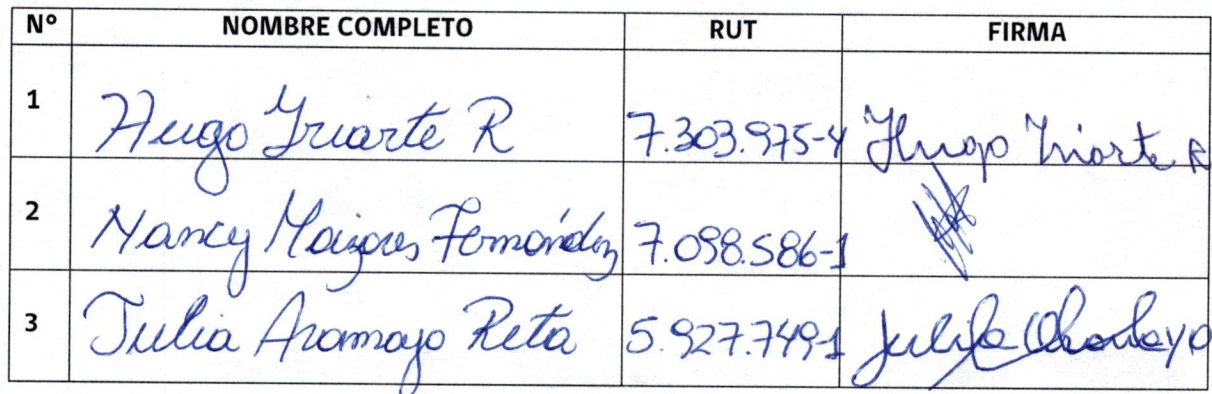 N° NOMBRE COMPLETO RUT FIRMA
1 Hugo Iriarte R 7.303.975-4 Hugo Iriarte R
2 Nancy Maizares Fernández 7.098.586-1
3 Julia Aramayo Reta 5.927.749-1 Julia